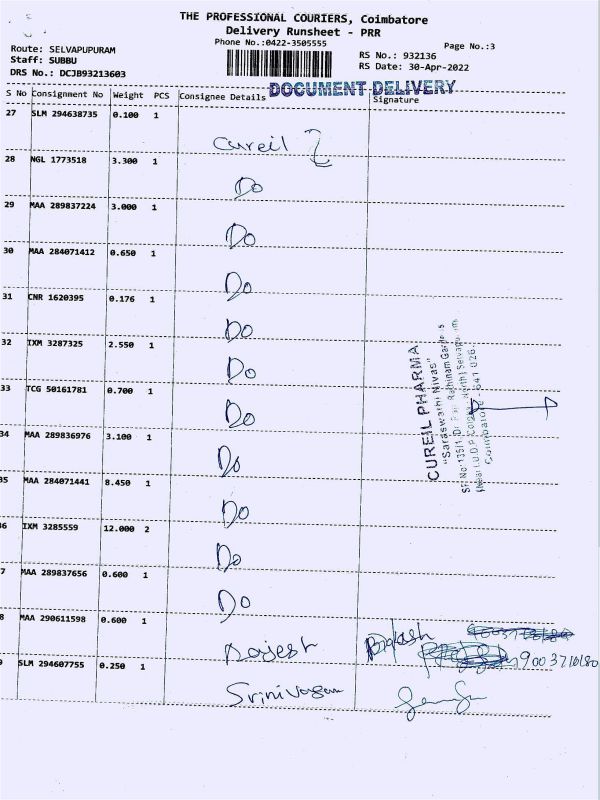 THE PROFESSIONAL COURIERS, Coimbatore
Delivery Runsheet - PRR
Phone No.:0422-3505555
Page No.:3
Route: SELVAPUPURAM
Staff: SUBBU
DRS No.: DCJB93213603
RS No.: 932136
RS Date: 30-Apr-2022
DOCUMENT DELIVERY
S No Consignment No Weight PCS Consignee Details Signature
27 SLM 294638735 0.100 1
Cureil
28 NGL 1773518 3.300 1
Do
29 MAA 289837224 3.000 1
Do
30 MAA 284071412 0.650 1
Do
31 CNR 1620395 0.176 1
Do
32 IXM 3287325 2.550 1
Do
33 TCG 50161781 0.700 1
Do
34 MAA 289836976 3.100 1
Do
35 MAA 284071441 8.450 1
Do
36 IXM 3285559 12.000 2
Do
7 MAA 289837656 0.600 1
Do
8 MAA 290611598 0.600 1
Rajesh
9003716180
9 SLM 294607755 0.250 1
Srinivasan
CUREIL PHARMA
"Saraswathi Nivas"
Coimbatore - 641 026.